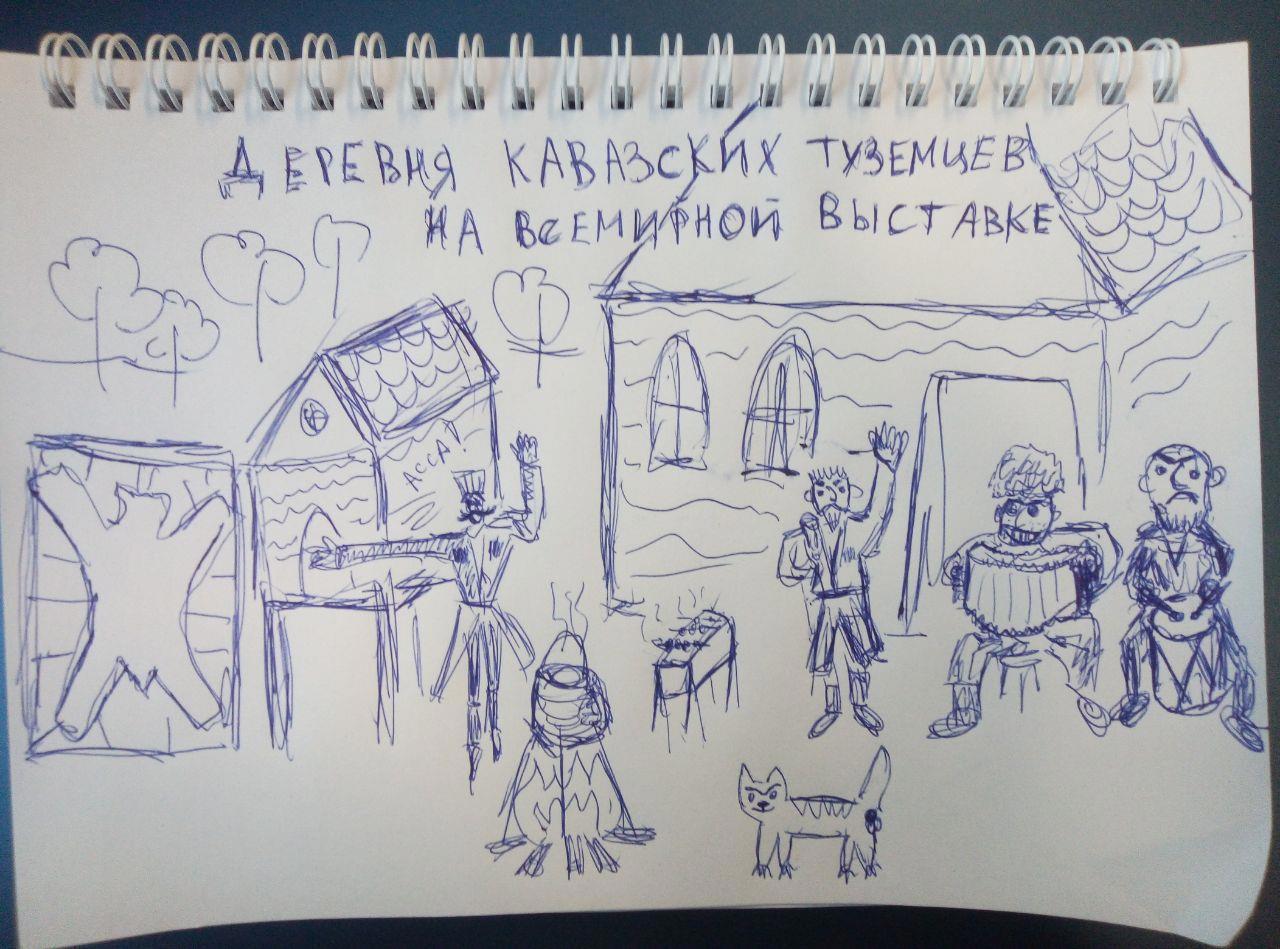 ДЕРЕВНЯ КАВАЗСКИХ ТУЗЕМЦЕВ
НА ВСЕМИРНОЙ ВЫСТАВКЕ
АССА!